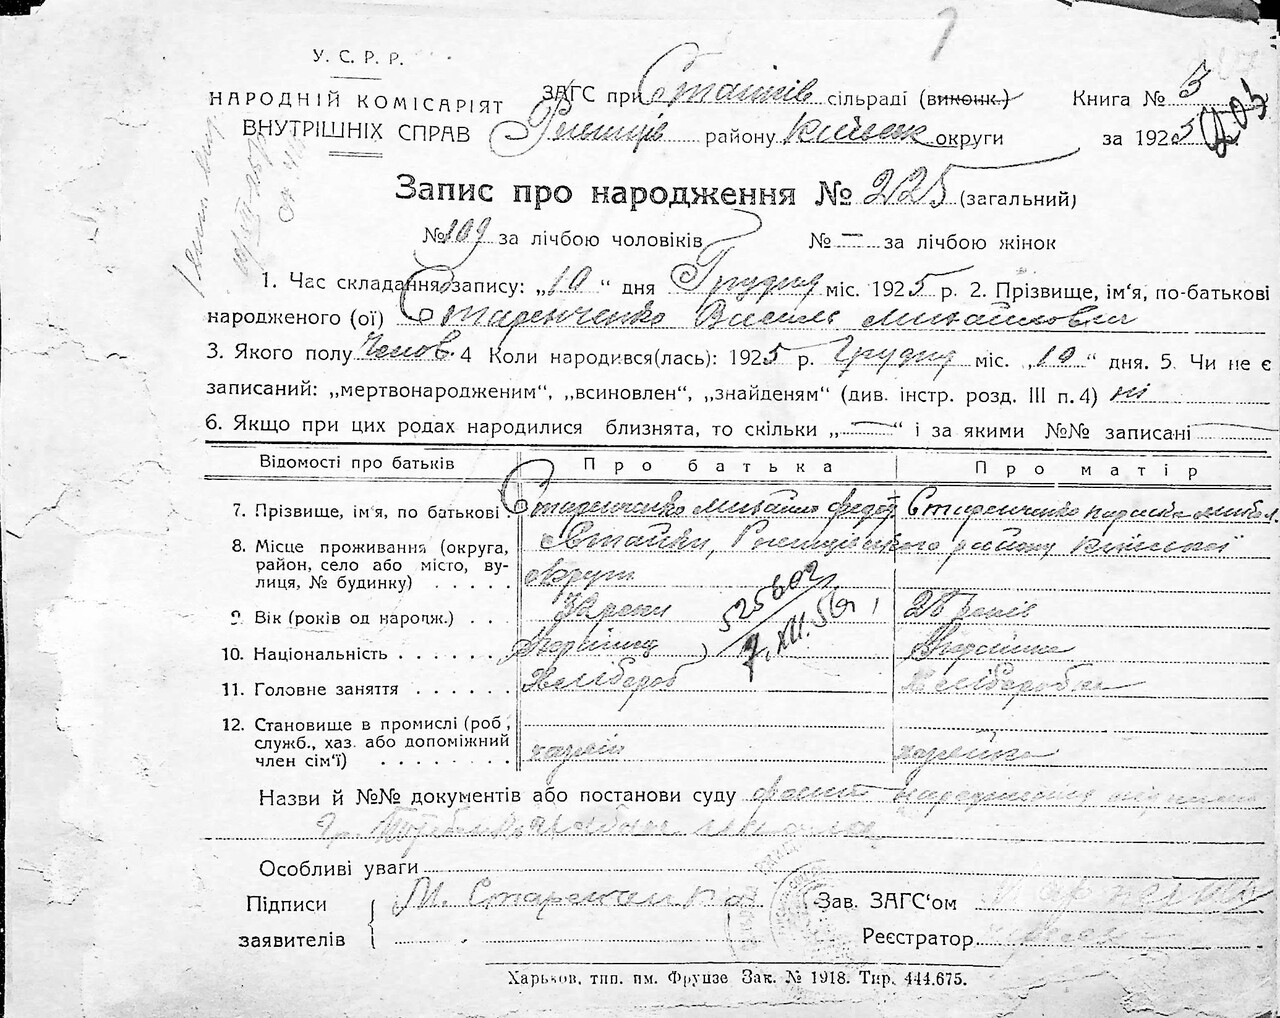 У. С. Р. Р.
НАРОДНІЙ КОМІСАРІЯТ
ВНУТРІШНІХ СПРАВ
ЗАГС при Стайків сільраді (виконк.)
Ржищів району Київськ округи
Книга № 3
за 1925
203
Запис про народження № 225 (загальний)
№ 109 за лічбою чоловіків № — за лічбою жінок
1. Час складання запису: „10“ дня Грудня міс. 1925 р. 2. Прізвище, ім'я, по-батькові
народженого (ої) Старенченко Василь Михайлович
3. Якого полу Чолов. 4 Коли народився(лась): 1925 р. Грудня міс. „10“ дня. 5. Чи не є
записаний: „мертвонародженим“, „всиновлен“, „знайденям“ (див. інстр. розд. III п. 4) ні
6. Якщо при цих родах народилися близнята, то скільки „—“ і за якими №№ записані —
Відомості про батьків Про батька Про матір
7. Прізвище, ім'я, по батькові Старенченко Михайло Федор Старенченко Параска
8. Місце проживання (округа,
район, село або місто, вулиця, № будинку) Стайки, Ржищівського району Київської
округи
9. Вік (років од народж.) роки 28 років
525602
7.XII.56
10. Національність Українець Українка
11. Головне заняття Хлібороб Хліборобка
12. Становище в промислі (роб,
служб., хаз. або допоміжний
член сім'ї) хазяїн хазяйка
Назви й №№ документів або постанови суду факт народження
Особливі уваги
Підписи
заявителів
М. Старенченко
Зав. ЗАГС'ом
Реєстратор
Харьков, тип. им. Фрунзе Зак. № 1918. Тир. 444.675.